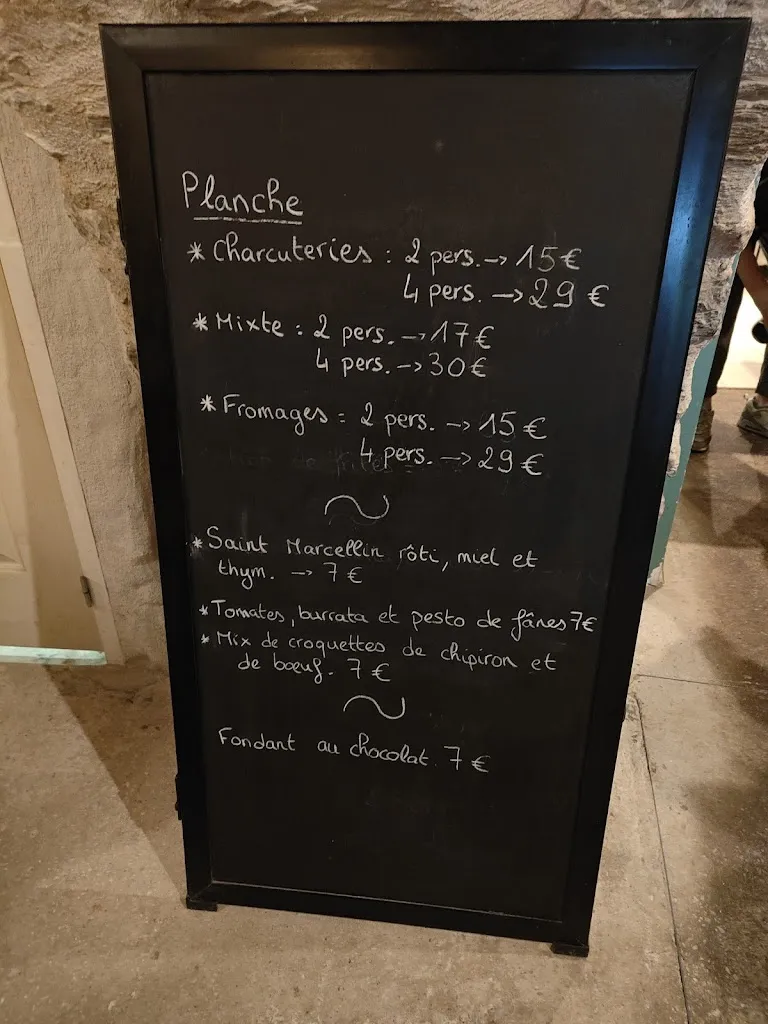 Planche
* Charcuteries : 2 pers. → 15 €
4 pers. → 29 €
* Mixte : 2 pers. → 17 €
4 pers. → 30 €
* Fromages : 2 pers. → 15 €
4 pers. → 29 €
* Saint Marcellin rôti, miel et
thym. → 7 €
* Tomates, burrata et pesto de fânes 7 €
* Mix de croquettes de chipiron et
de bœuf. 7 €
Fondant au chocolat. 7 €